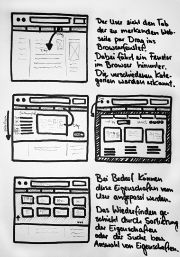 Der User zieht den Tab
der zu merkenden Web-
seite per Drag ins
Browserfenster.
Dabei fährt ein Fenster
im Browser herunter.
Die verschiedenen Kate-
gorien werden erkannt.
Bei Bedarf können
diese Eigenschaften vom
User angepasst werden.
Das Wiederfinden ge-
schieht durch Sortierung
der Eigenschaften
oder der Suche bzw.
Auswahl von Eigenschaften.